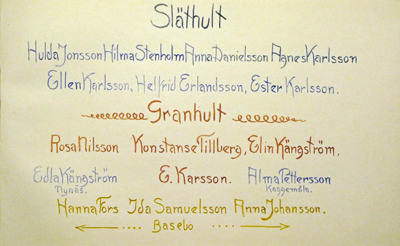 Släthult
Hulda Jonsson Hilma Stenholm Anna Danielsson Agnes Karlsson
Ellen Karlsson, Helfrid Erlandsson, Ester Karlsson.
Granhult
Rosa Nilsson Konstanse Tillberg, Elin Kängström,
Edla Kängström E. Karsson. Alma Pettersson
Flynäs. Kaggemåla.
Hanna Fors Ida Samuelsson Anna Johansson.
Basebo